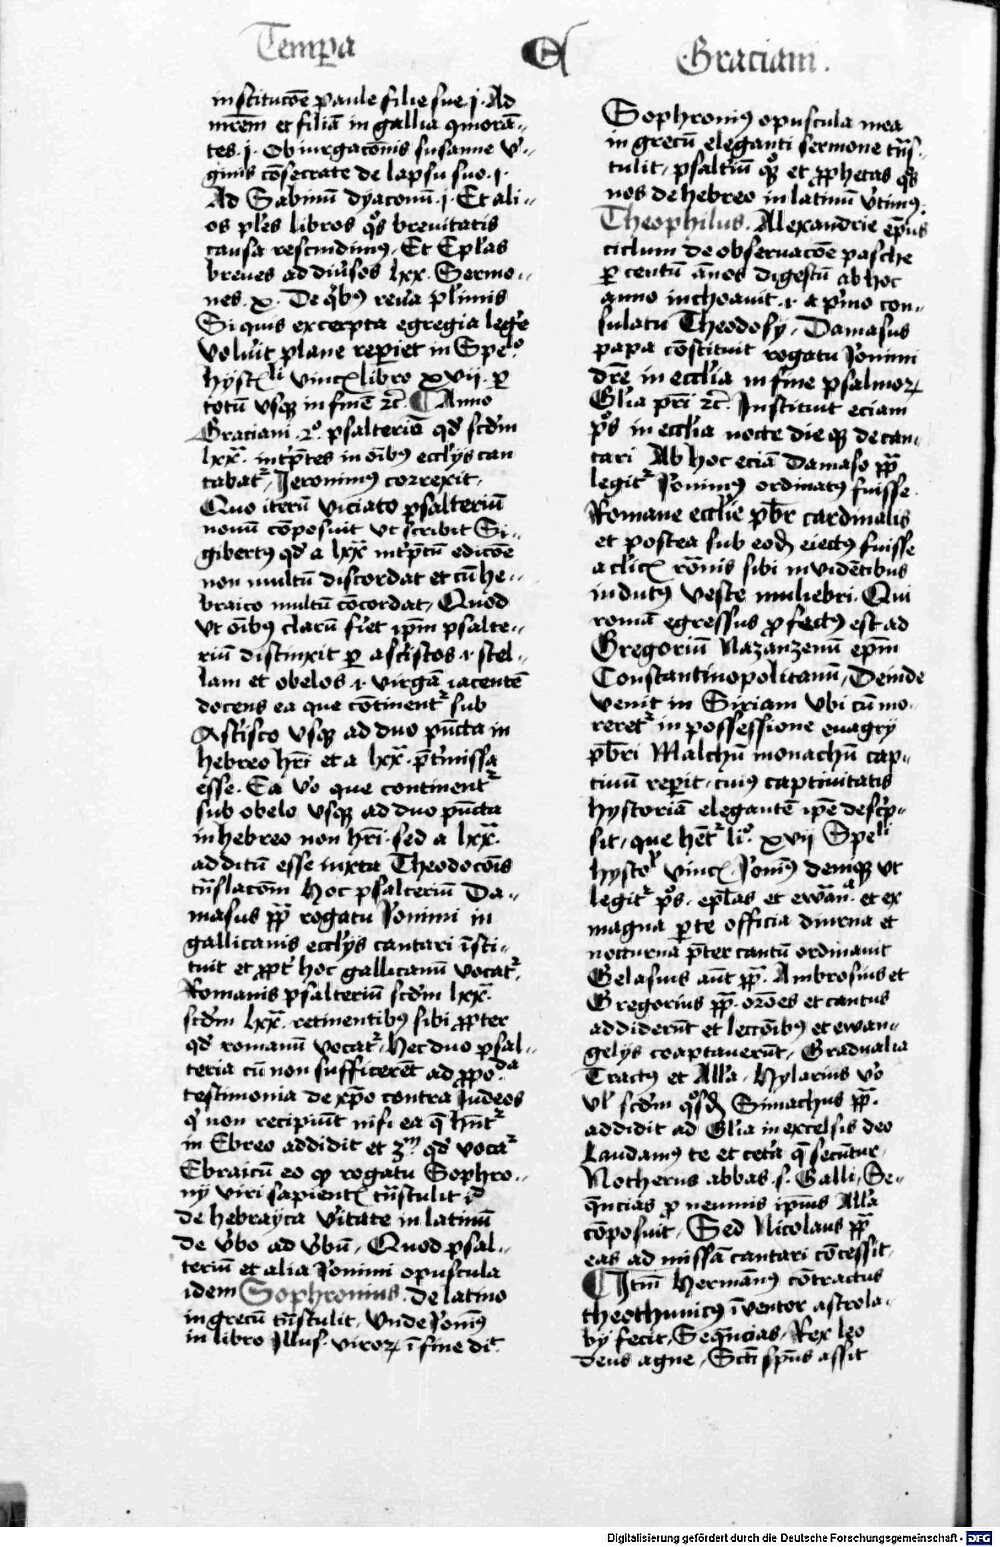 Tempa
Graciani.
institucoē paule filie sue j. Ad
mr̄em et filiā in gallia q̄morā-
tes. j. Obiurgacōnis susanne v̓-
ginis cōsecrate de lapsu suo. j.
Ad Sabinū dyaconū. j. Et ali-
os pl̓es libros q̊s brevitatis
causa rescindimꝰ. Et Ep̄las
breves ad diu̓sos lxx. Sermo-
nes. x. De q̓bꝰ reu̓a pl̓imis
Si quis excerpta egregia leg̓e
voluit plane reperiet in Spe.
hyst vinc libro xvij. ꝑ
totū vsqꝫ in finē ⁊c̄. Anno
Graciani .2º. psalteriū qd̓ scd̓m
lxx. int̓p̄tes in oī̄bꝰ eccl̓ijs can
tabat᷑, Jeronimꝰ correxit,
Quo iterū viciato psalteriū
nouū cōposuit vt scribit Si-
gibertꝰ qd̓ a lxx int̓p̄tū edicōe
non multū discordat et cū he-
braico multū cōcordat, Quod
vt oī̄bꝰ clarū fiet ip̄m psalte-
riū distinxit ꝑ ast̓iscos .i. stel-
lam et obelos .i. virgā iacentē
docens ea que cōtinent᷑ sub
Ast̓isco vsqꝫ ad duo pūcta in
hebreo h̓ri et a lxx. p̄t̓missa
esse. Ea v̓o que continent᷑
sub obelo vsqꝫ ad duo pūcta
in hebreo non h̓ri. sed a lxx.
additū esse iuxta Theodocōis
tn̄slacōm hoc psalteriū Da-
masus pp̄ rogatu Jonimi in
gallicanis eccl̓ijs cantari īsti-
tuit et ꝓpt̓ hoc gallicanū vocat᷑.
Romanis psalteriū scd̓m lxx.
scd̓m lxx. retinentibꝰ sibi ꝓpter
qd̓ romanū vocat᷑, hec duo psal-
teria cū non sufficerēt ad ꝓpo.da
testimonia de xp̄o contra Judeos
q̓ non recipiūt nisi ea q̄ h̄nt᷑
in Ebreo addidit et 3m qd̓ voca᷑
Ebraicū eo qꝫ rogatu Sophro-
nij viri sapient tn̄stulit id
de hebrayca v̓itate in latinū
de v̓bo ad v̓bū, Quod psal-
teriū et alia Jonimi opuscula
idem Sophronius. de latino
in grecū tn̄stulit, vnde Jonimꝰ
in libro Illus. viroꝝ ī fine dic̄.
Sophroniꝰ opuscula mea
in grecū eleganti sermone tn̄s-
tulit, psaltiū qꝫ et ꝓphetas q̊s
nos de hebreo in latinū v̓timꝰ.
Theophilus. Alexandrie ep̄us
ciclum de obseruacōe pasche
ꝑ centū ānos digestū ab hoc
anno inchoavit .i. a p̓mo con-
sulatu Theodosij, Damasus
papa cōstituit rogatu Jonimi
dr̄e in eccl̓ia in fine psalmoꝝ
Gl̓ia pr̄i ⁊c̄. Instituit eciam
p̊s in eccl̓ia nocte die qꝫ decan-
tari Ab hoc eciā Damaso pp̄
legit᷑ Jonimꝰ ordinatꝰ fuisse
Romane eccl̓ie p̄br cardinalis
et postea sub eod̄ eiectꝰ fuisse
a cl̓ic rōnis sibi invidētibus
indutꝰ veste muliebri. Qui
romā egressus ꝓfectꝰ est ad
Gregoriū Nazanzenū ep̄m
Constantinopolitanū, Deinde
venit in Siriam vbi cū mo-
reret᷑ in possessione euagrij
p̄bri Malchū monachū cap-
tiuū reperit, cuiꝰ captiuitatis
hystoriā elegantē ip̄e descp̓-
sit, que het᷑ li. xvij Spe.li
hysto vinc, Jonimꝰ deniqꝫ vt
legit᷑ p̊s. ep̄las et ewān. et ex
magna ꝑte officia diurna et
nocturna p̄ter cantū ordinauit
Gelasius aūt pp̄. Ambrosius et
Gregorius pp̄. orōes et cantus
addiderūt et leccōibꝰ et ewan-
gelijs coaptauerūt, Gradualia
Tractꝰ et All̓a, Hylarius v̓o
vl̓ scd̓m q̊sd̄ Simachus pp̄.
addidit ad Gl̓ia in excelsis deo
Laudamꝰ te et cet̓a q̄ secūtur,
Notherus abbas .s. Galli, Se-
q̄ncias ꝑ neumis ip̄ius All̓a
cōposuit, Sed Nicolaus pp̄
eas ad missā cantari cōcessit,
Itm̄ Hermānꝰ cōtractus
theothunicꝰ īventor astrola-
bij fecit, Seq̄ncias, Rex leo
deus agne, Sc̄ti sp̄us assit
Digitalisierung gefördert durch die Deutsche Forschungsgemeinschaft - DFG